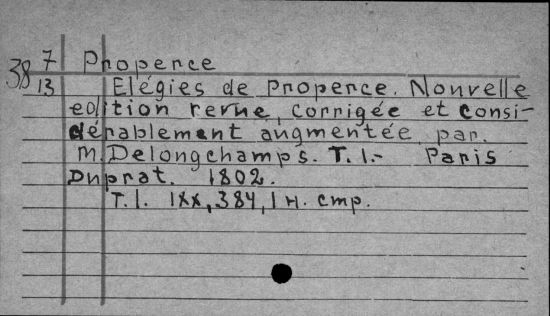 38 7 Properce
13 Elégies de Properce. Nouvelle
edition revue, corrigée et consi-
dérablement augmentée par.
M. Delongchamps. T. I.- Paris
Duprat. 1802.
T. I. 1XX, 384, 1 н. стр.